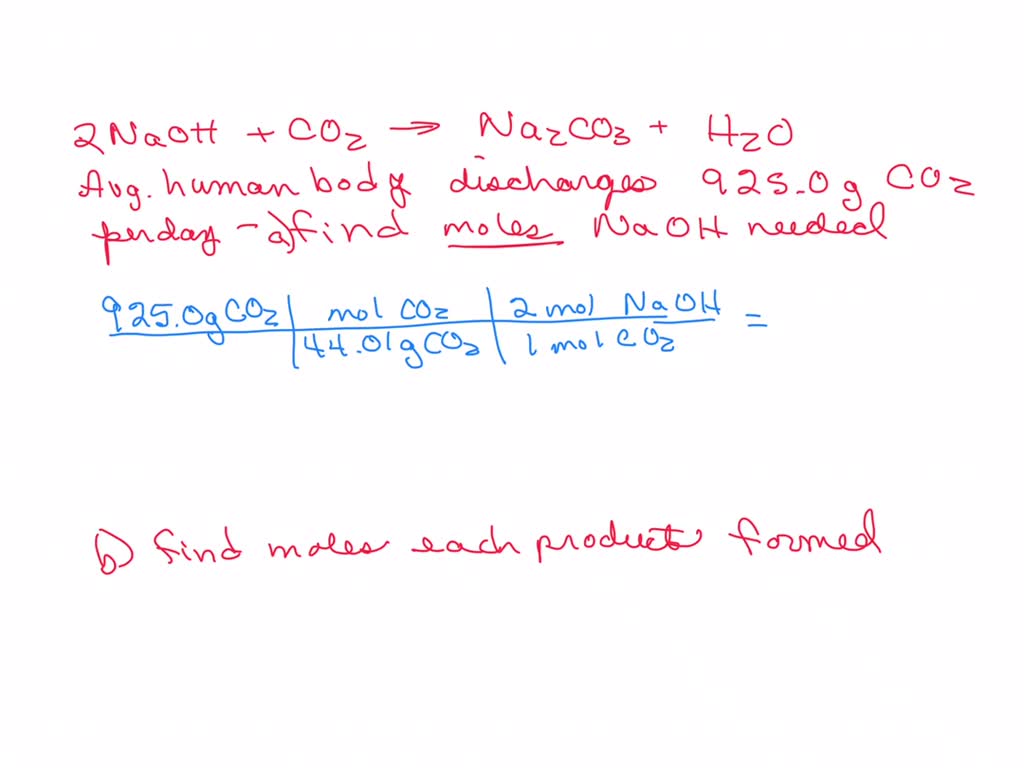 2NaOH + CO2 → Na2CO3 + H2O
Avg. human body discharges 925.0g CO2
per day - a) find moles NaOH needed
925.0g CO2 | mol CO2 | 2 mol NaOH =
| 44.01g CO2 | 1 mol CO2
b) find moles each product formed